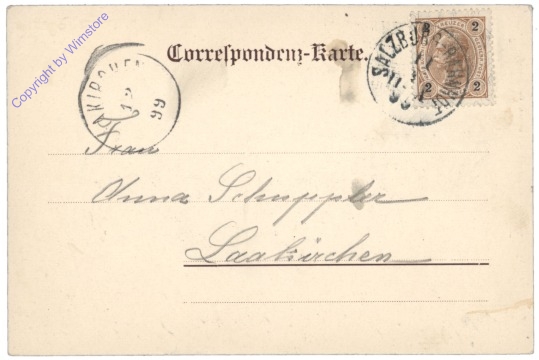 Copyright by Wimstore
Correspondenz-Karte.
SALZBURG BAHNHOF
11
99
2 2
2 2
AKIRCHEN
12
99
Frau
Anna Schuppler
Laakirchen